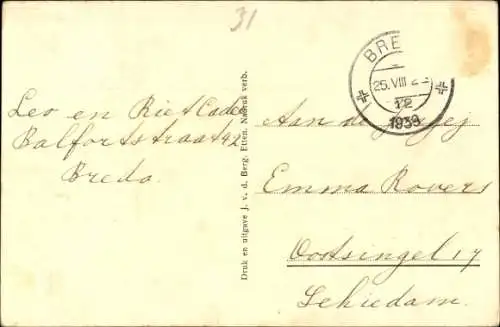 31
BRE
25. VIII
12
1939
Leo en Riet Cade
Balfortstraat 42
Breda.
Druk en uitgave J. v. d. Berg, Etten. Nadruk verb.
Aan de
Emma Rovers
Oostsingel 17
Schiedam.